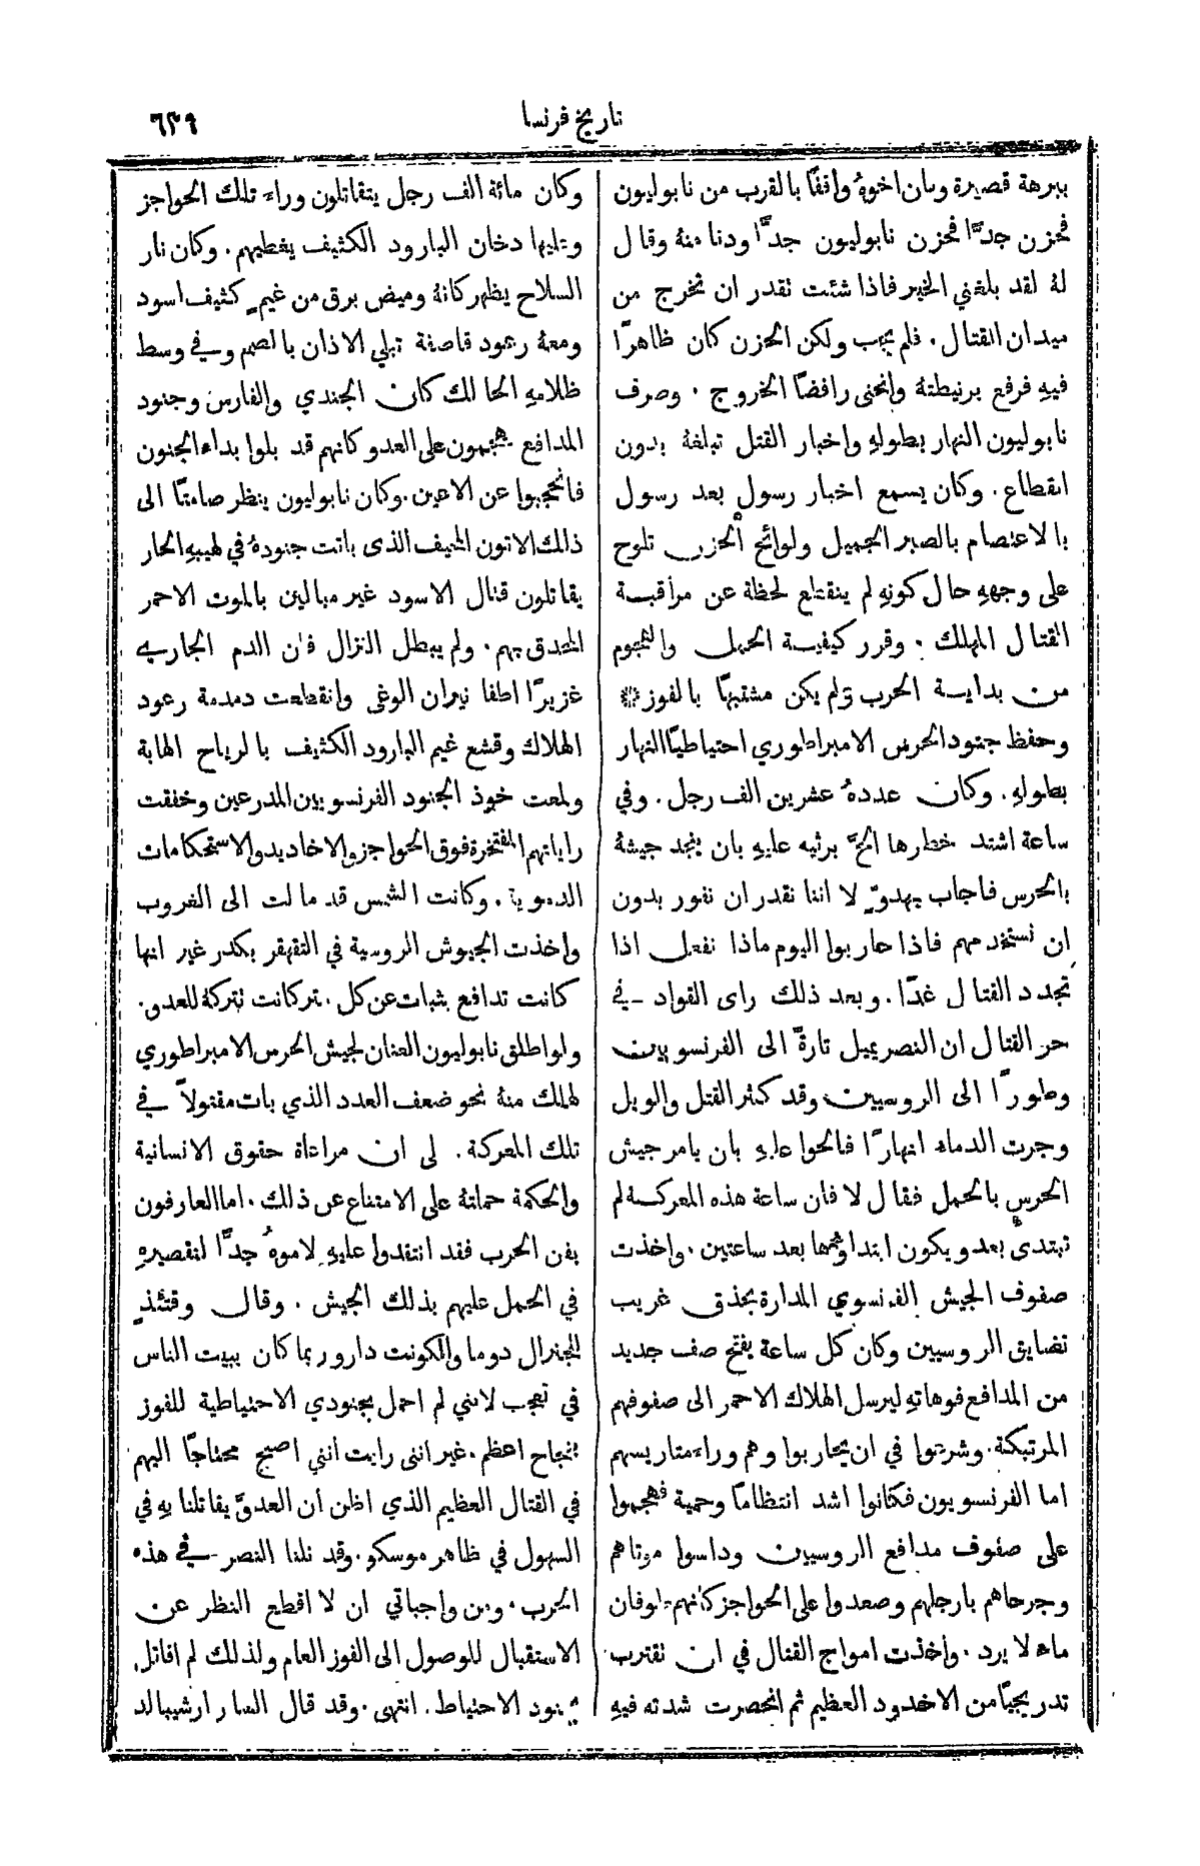 تاريخ فرنسا
٦٣٩
ببرهة قصيرة وكان اخوهُ واقفًا بالقرب من نابوليون
فحزن جدًّا فحزن نابوليون جدًّا ودنا منهُ وقال
لهُ لقد بلغني الخبر فاذا شئت تقدر ان تخرج من
ميدان القتال. فلم يجب ولكن الحزن كان ظاهرًا
فيهِ فرفع برنيطتهُ وانحنى رافضًا الخروج . وصرف
نابوليون النهار بطولهِ واخبار القتل تبلغهُ بدون
انقطاع. وكان يسمع اخبار رسول بعد رسول
بالاعتصام بالصبر الجميل ولوائح الحزن تلوح
على وجههِ حال كونهِ لم ينقطع لحظة عن مراقبة
القتال المهلك . وقرر كيفية الحمل والهجوم
من بداية الحرب ولم يكن مشتبهًا بالفوز *
وحفظ جنود الحرس الامبراطوري احتياطيًا النهار
بطولهِ. وكان عددهُ عشرين الف رجل. وفي
ساعة اشتد خطارها الحَّ برثيه عليهِ بان ينجد جيشهُ
بالحرس فاجاب بهدوٍّ لا اننا نقدر ان نفوز بدون
ان نستخدمهم فاذا حاربوا اليوم ماذا نفعل اذا
تجدد القتال غدًا. وبعد ذلك راى القواد في
حر القتال ان النصر يميل تارةً الى الفرنسويين
وطورًا الى الروسيين وقد كثر القتل والويل
وجرت الدماء انهارًا فالحوا عليهِ بان يامر جيش
الحرس بالحمل فقال لا فان ساعة هذه المعركة لم
تبتدئ بعد ويكون ابتداوُها بعد ساعتين. واخذت
صفوف الجيش الفرنسوي المدارة بحذق غريب
تضايق الروسيين وكان كل ساعة يفتح صف جديد
من المدافع فوهاتهِ ليرسل الهلاك الاحمر الى صفوفهم
المرتبكة. وشرعوا في ان يحاربوا وهم وراء متاريسهم
اما الفرنسويون فكانوا اشد انتظامًا وحمية فهجموا
على صفوف مدافع الروسيين وداسوا موتاهم
وجرحاهم بارجلهم وصعدوا على الحواجز كانهم طوفان
ماء لا يرد . واخذت امواج القتال في ان تقترب
تدريجيًا من الاخدود العظيم ثم انحصرت شدته فيهِ
وكان مائة الف رجل يتقاتلون وراء تلك الحواجز
وتليها دخان البارود الكثيف يغطيهم. وكان نار
السلاح يظهر كانهُ وميض برق من غيمٍ كثيف اسود
ومعهُ رعود قاصفة تبلي الاذان بالصمم وفي وسط
ظلامهِ الحالك كان الجندي والفارس وجنود
المدافع يهجمون على العدو كانهم قد بلوا بداء الجنون
فانحجبوا عن الاعين. وكان نابوليون ينظر صامتًا الى
ذلك الاتون المخيف الذي باتت جنودهُ في لهيبهِ الحار
يقاتلون قتال الاسود غير مبالين بالموت الاحمر
المحدق بهم. ولم يبطل النزال فان الدم الجاري
غزيرًا اطفا نيران الوغى وانقطعت دمدمة رعود
الهلاك وقشع غيم البارود الكثيف بالرياح الهابة
ولمعت خوذ الجنود الفرنسويين المدرعين وخفقت
راياتهم المفتخرة فوق الحواجز والاخاديد والاستحكامات
الدموية. وكانت الشمس قد مالت الى الغروب
واخذت الجيوش الروسية في التقهقر بكدر غير انها
كانت تدافع بثبات عن كل تركانت تتركهُ للعدو.
ولو اطلق نابوليون العنان لجيش الحرس الامبراطوري
لهلك منهُ نحو ضعف العدد الذي بات مقتولاً في
تلك المعركة. لى ان مراعاة حقوق الانسانية
والحكمة حملتهُ على الامتناع عن ذلك. اما العارفون
بفن الحرب فقد انتقدوا عليهِ لاموهُ جدًّا لتقصيرهِ
في الحمل عليهم بذلك الجيش. وقال وقتئذٍ
للجنرال دوما والكونت دارو ربما كان يبيت الناس
في تعجب لانني لم احمل بجنودي الاحتياطية للفوز
بنجاح اعظم. غير انني رايت انني اصبح محتاجًا اليهم
في القتال العظيم الذي اظن ان العدوَّ يقاتلنا بهِ في
السهول في ظاهر موسكو. وقد نلنا النصر في هذه
الحرب. ومن واجباتي ان لا اقطع النظر عن
الاستقبال للوصول الى الفوز العام ولذلك لم اقاتل
بجنود الاحتياط. انتهى. وقد قال السار ارشيبالد